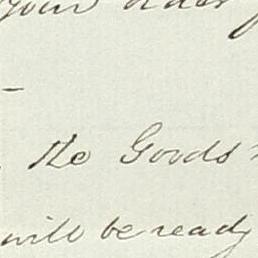 your order
the Goods
will be ready